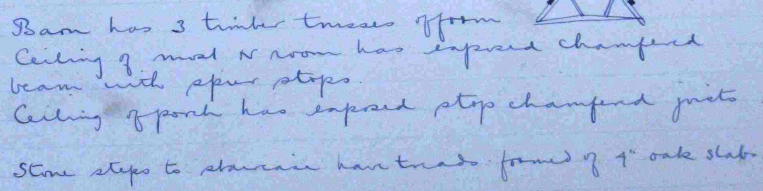 Barn has 3 timber trusses of form
Ceiling of most N room has exposed chamfered
beam with spur stops.
Ceiling of porch has exposed stop chamfered joists
Stone steps to staircase have treads formed of 4" oak slabs